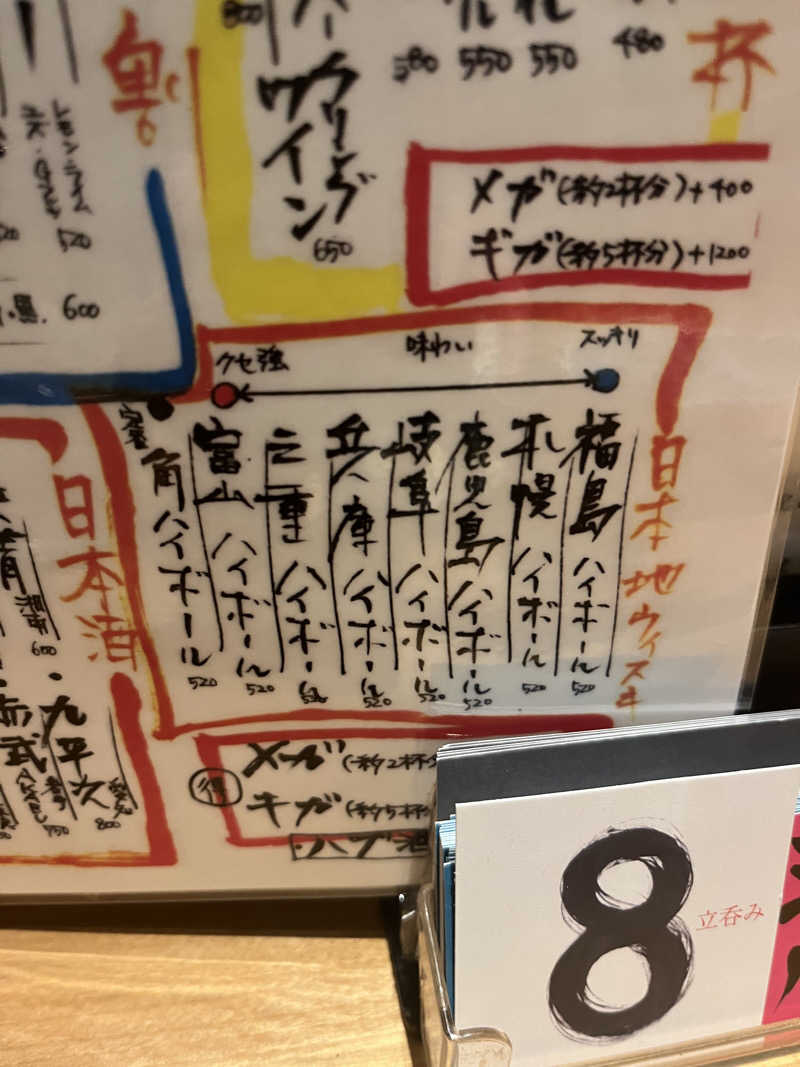 800
580
550
550
480
杯
グリーング
ワイン
650
メガ(約2杯分)+400
ギガ(約5杯分)+1200
割
レモン・ライム
520
・黒
600
クセ強
味わい
スッキリ
日本地ウィスキ
福島ハイボール
520
札幌ハイボール
520
鹿児島ハイボール
520
岐阜ハイボール
520
兵庫ハイボール
520
三重ハイボール
520
富山ハイボール
520
定番
角ハイボール
520
日本酒
湘南
600
・九平次
愛知
800
赤武
AKABU
岩手
750
得
メガ(約2杯分
ギガ(約5杯分
8
立呑み